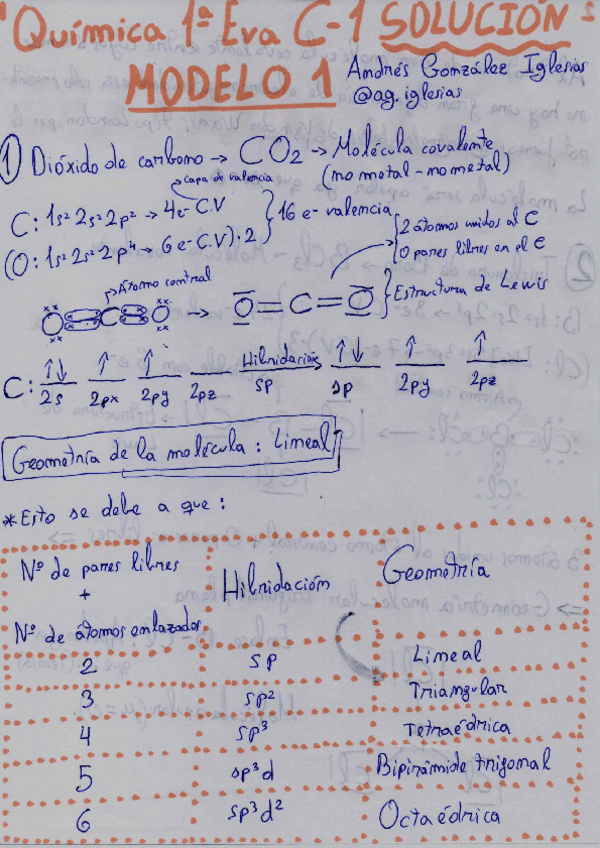 Química 1ª Eva C-1 SOLUCIÓN
MODELO 1
Andrés González Iglesias
@ag.iglesias
① Dióxido de carbono → CO2 → Molécula covalente
(no metal - no metal)
capa de valencia
C: 1s² 2s² 2p² → 4e- C.V
(O: 1s² 2s² 2p⁴ → 6 e- C.V)·2
16 e- valencia
2 átomos unidos al C
0 pares libres en el C
Átomo central
O C O → O=C=O
Estructura de Lewis
C: ↑↓ ↑ ↑ Hibridación ↑↓ ↑ ↑
2s 2px 2py 2pz sp sp 2py 2pz
Geometría de la molécula: Lineal
*Esto se debe a que:
Nº de pares libres
+
Nº de átomos enlazados
Hibridación
Geometría
2 sp Lineal
3 sp² Triangular
4 sp³ Tetraédrica
5 sp³d Bipirámide trigonal
6 sp³d² Octaédrica